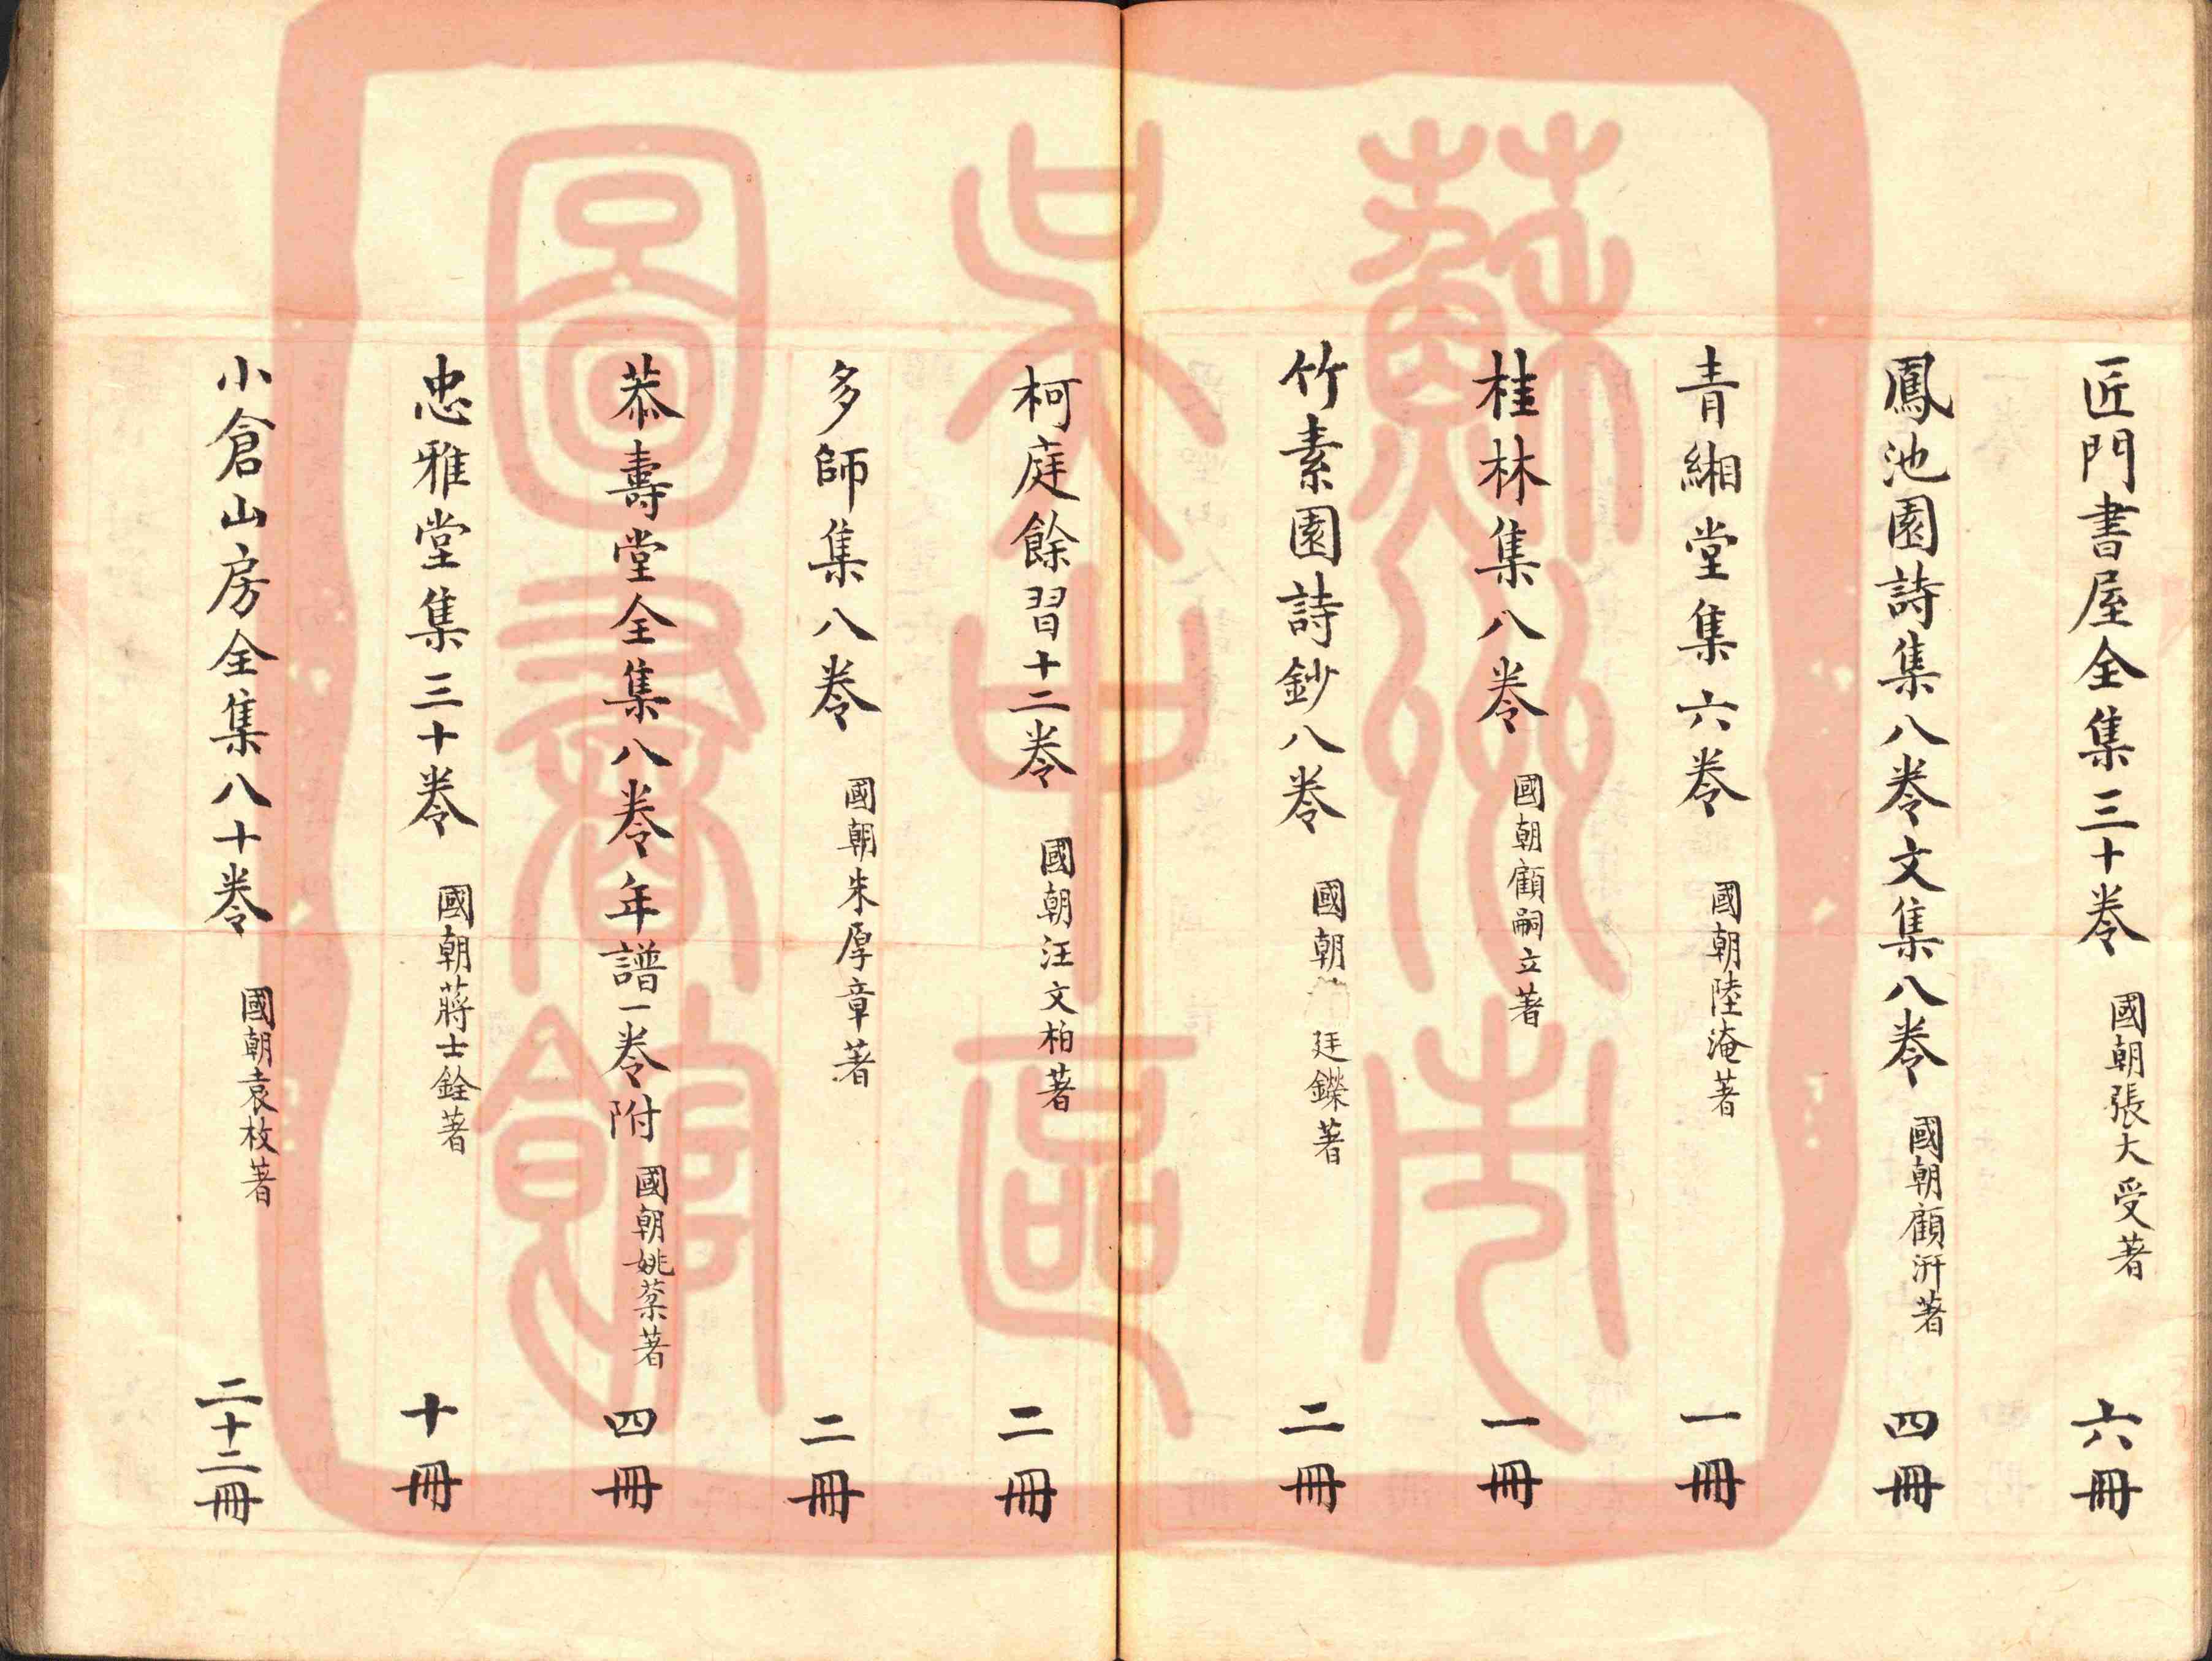 匠門書屋全集三十卷 國朝張大受著 六冊
鳳池園詩集八卷文集八卷 國朝顧汧著 四冊
青緗堂集六卷 國朝陸淹著 一冊
桂林集八卷 國朝顧嗣立著 一冊
竹素園詩鈔八卷 國朝 廷鑅著 二冊
柯庭餘習十二卷 國朝汪文柏著 二冊
多師集八卷 國朝朱厚章著 二冊
恭壽堂全集八卷年譜一卷附 國朝姚葈著 四冊
忠雅堂集三十卷 國朝蔣士銓著 十冊
小倉山房全集八十卷 國朝袁枚著 二十二冊
蘇州市
吳中區
圖書館